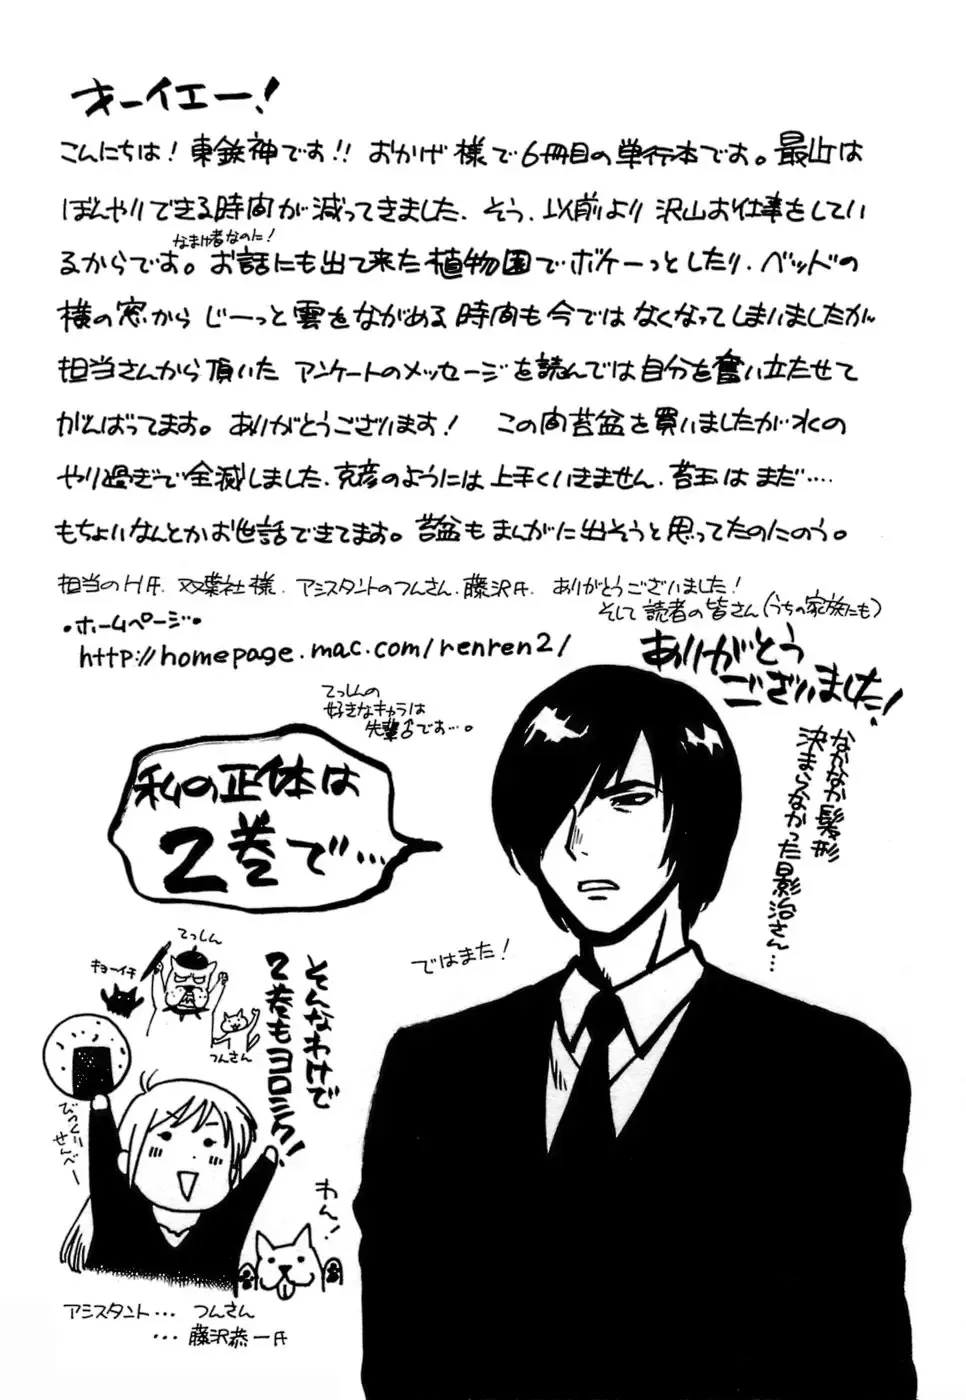 オーイエー!
こんにちは!東鉄神です!!おかげ様で6冊目の単行本です。最近は
ぼんやりできる時間が減ってきました、そう、以前より沢山お仕事をしてい
なまけ者なのに!
るからです。お話にも出て来た植物園でボケーっとしたり、ベッドの
横の窓からじーっと雲をながめる時間も今ではなくなってしまいましたが、
担当さんから頂いたアンケートのメッセージを読んでは自分を奮い立たせて
がんばってます。ありがとうございます! この間苔盆を買いましたが水の
やり過ぎで全滅しました、克彦のようには上手くいきません、苔玉はまだ‥‥
もちょいなんとかお世話できてます。苔盆もまんがに出そうと思ってたのにのう。
担当のH氏、双葉社様、アシスタントのつんさん、藤沢氏、ありがとうございました!
そして読者の皆さん(うちの家族にも)
ありがとう
ございました!
・ホームページ・
http://homepage.mac.com/renren2/
てっしんの
好きなキャラは
先輩♂です‥。
なかなか髪形
決まらなかった影治さん…
私の正体は
2巻で…
ではまた!
そんなわけで
2巻もヨロシク!
てっしん
キョーイチ
つんさん
びっくり
せんべー
わん!
アシスタント… つんさん
…藤沢恭一氏